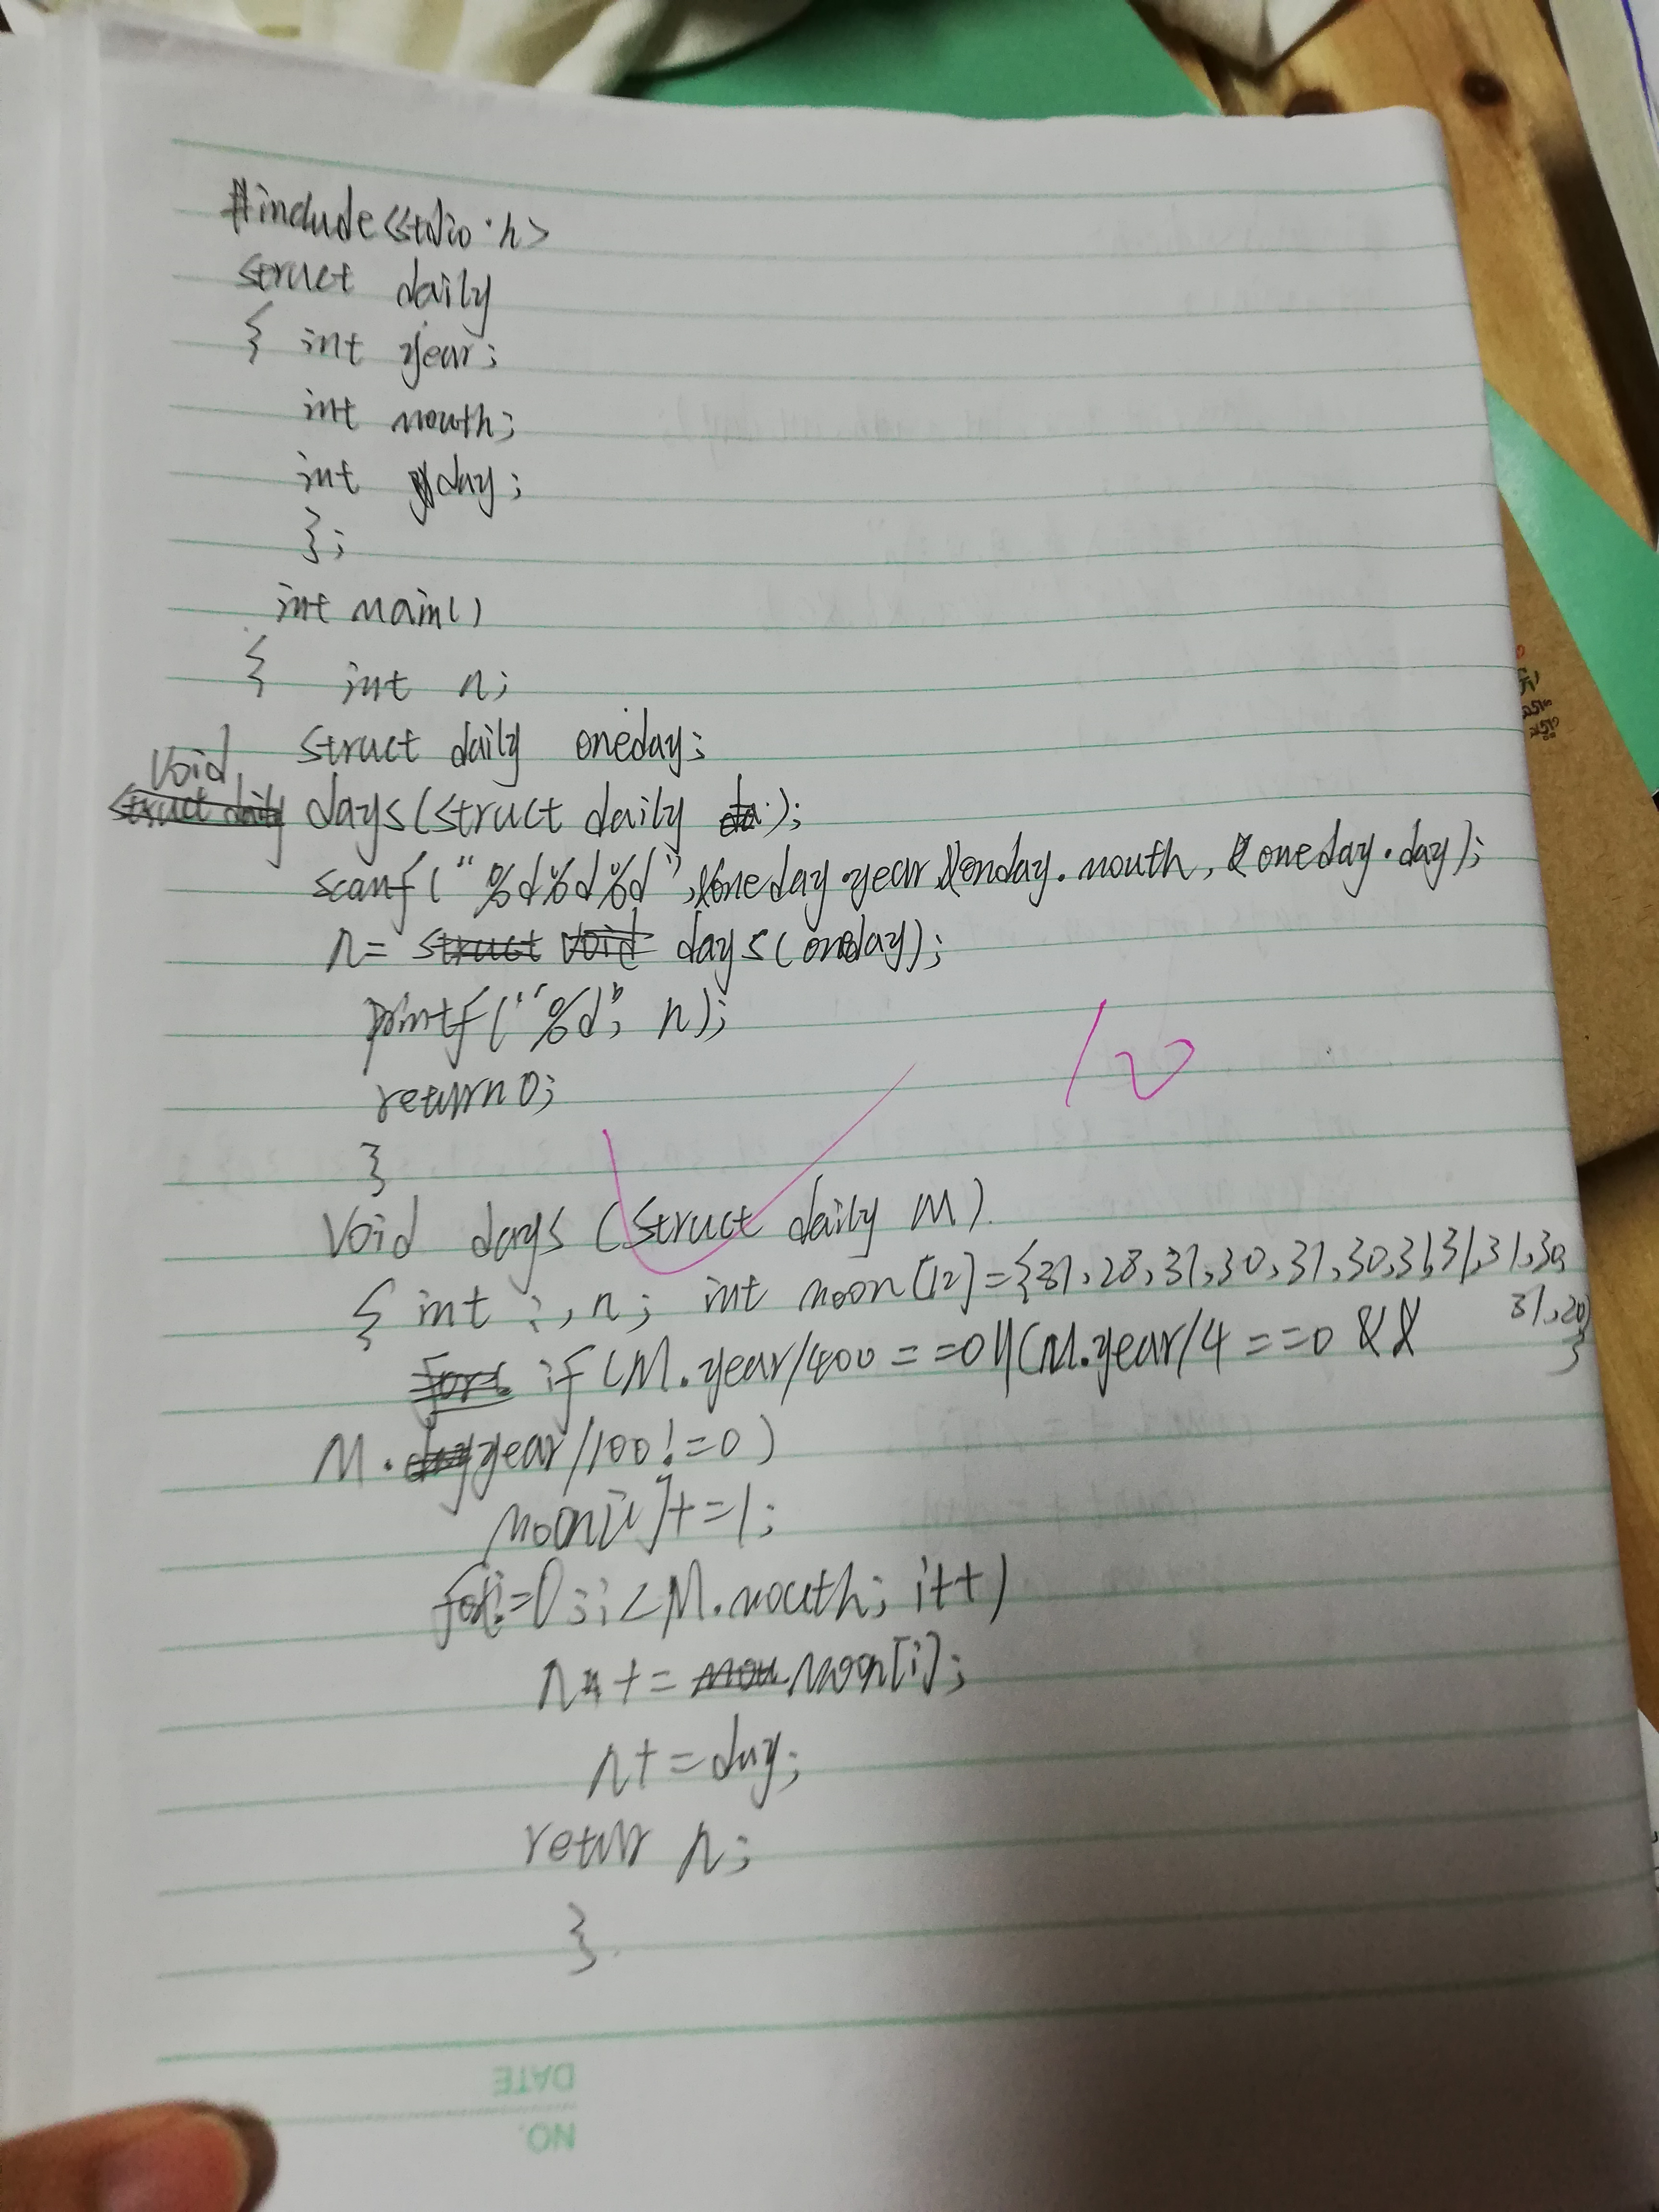 #include<stdio.h>
struct daily
{ int year;
int mouth;
int day;
};
int main()
{ int n;
struct daily oneday;
void
struct daily days(struct daily da);
scanf("%d%d%d",&oneday.year,&onday.mouth,&oneday.day);
n= struct void days(oneday);
printf("%d", n);
return 0;
}
10
void days (struct daily M)
{ int i,n; int moon[12]={31,28,31,30,31,30,31,31,31,30,
31,20}
for( if (M.year/400==0||(M.year/4==0 &&
M.day year/100!=0)
moon[i]+=1;
for(i=0;i<M.mouth;i++)
n+= mou moon[i];
n+=day;
retur n;
}
DATE
NO.